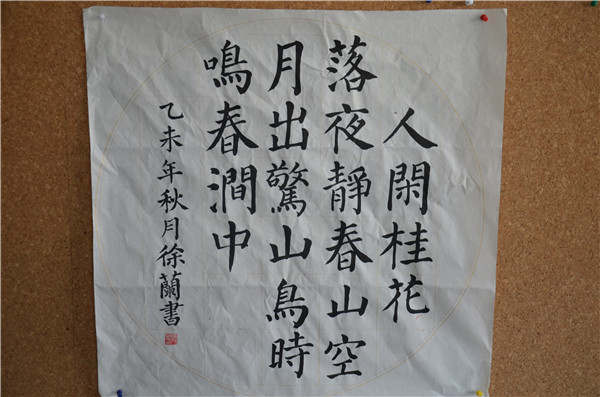 人閑桂花
落夜靜春山空
月出驚山鳥時
鳴春澗中
乙未年秋月徐蘭書